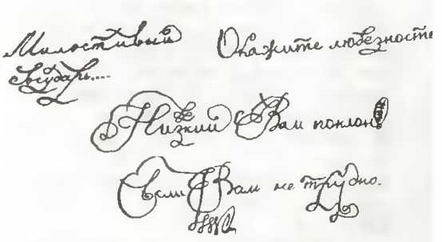 Милостивый
Государь....
Окажите любезность
Низкий Вам поклон!
Если Вам не трудно.